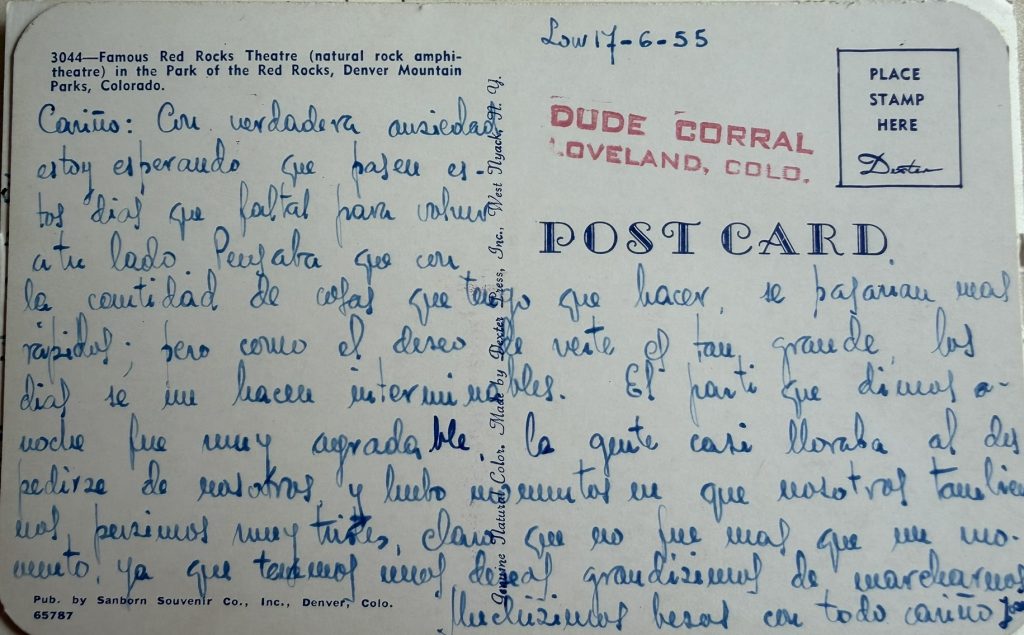 3044—Famous Red Rocks Theatre (natural rock amphi-
theatre) in the Park of the Red Rocks, Denver Mountain
Parks, Colorado.
17-6-55
PLACE
STAMP
HERE
Dexter
DUDE CORRAL
LOVELAND, COLO.
POST CARD
Genuine Natural Color. Made by Dexter Press, Inc., West Nyack, N. Y.
Cariño: Con verdadera ansiedad
estoy esperando que pasen es-
tos dias que faltas para volver
a tu lado. Pensaba que con
la cantidad de cosas que tengo que hacer, se pasarian mas
rápidos; pero como el deseo de verte es tan grande, los
dias se me hacen interminables. El parti que dimos a-
noche fue muy agradable, la gente casi lloraba al des
pedirse de nosotros, y hubo momentos en que nosotros tambien
nos pusimos muy tristes, claro que no fue mas que un mo-
mento, ya que tenemos unos deseos grandisimos de marcharnos
Muchisimos besos con todo cariño
Pub. by Sanborn Souvenir Co., Inc., Denver, Colo.
65787